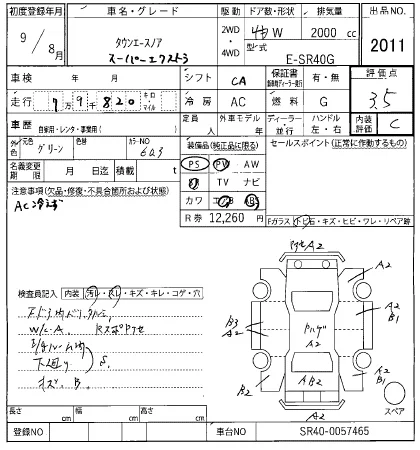 初度登録年月 車名・グレード 駆動 ドア数・形状 排気量 出品NO.
9/8月 タウンエースノア 2WD・4WD W 2000 cc 2011
スーパーエクストラ 型式 E-SR40G
車検 年 月 シフト CA 保証書 有・無 評価点
走行 7万9千820 キロ・マイル 冷房 AC 燃料 G 3.5
車歴 自家用・レンタ・事業用( ) 定員 人 外車モデル 年 ディーラー・並行 ハンドル 左・右 内装評価 C
外色 元色 グリーン 色替 カラーNO 6A3 装備品(純正品に限る) セールスポイント(正常に作動するもの)
名義変更期限 月 日迄 積載 t PS PW AW
注意事項(欠品・修復・不具合箇所および状態) TV ナビ
AC冷えず カワ エアB ABS
R券 12,260円 Fガラス トビ石・キズ・ヒビ・ワレ・リペア跡
検査員記入 内装 汚レ・スレ・キズ・キレ・コゲ・穴
W/C.A.
下廻り S.
キズ. B.
A2
A2
A2
B1
B3
A2
A2
B2
AB2
A2
B1
A2
スペア
長さ cm 幅 cm 高さ cm
登録NO 車台NO SR40-0057465